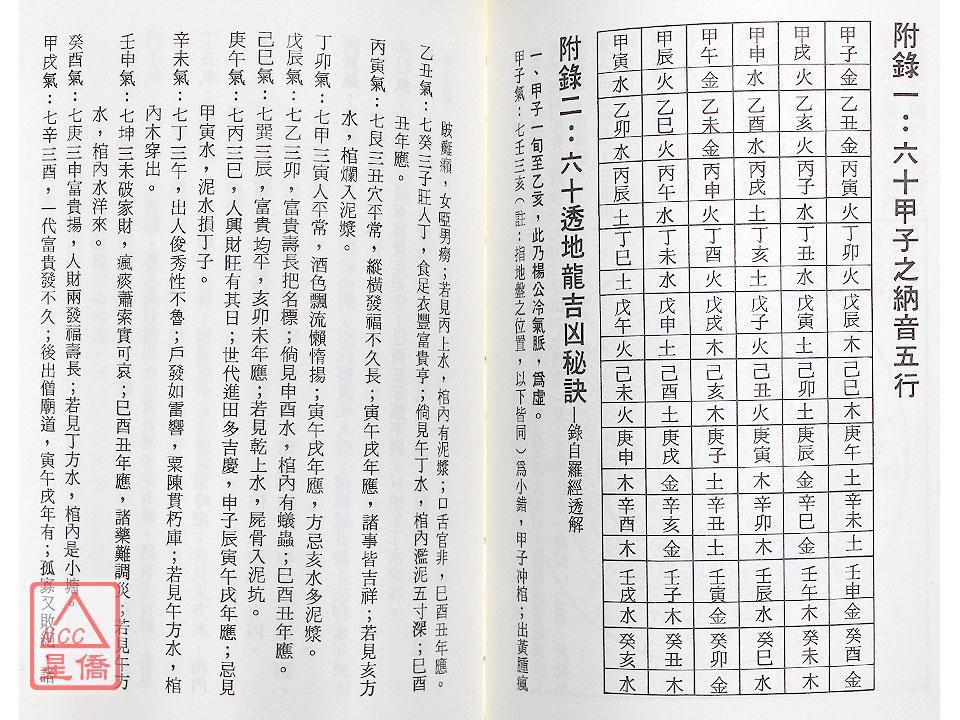 附錄一：六十甲子之納音五行
甲子 金 乙丑 金 丙寅 火 丁卯 火 戊辰 木 己巳 木 庚午 土 辛未 土 壬申 金 癸酉 金
甲戌 火 乙亥 火 丙子 水 丁丑 水 戊寅 土 己卯 土 庚辰 金 辛巳 金 壬午 木 癸未 木
甲申 水 乙酉 水 丙戌 土 丁亥 土 戊子 火 己丑 火 庚寅 木 辛卯 木 壬辰 水 癸巳 水
甲午 金 乙未 金 丙申 火 丁酉 火 戊戌 木 己亥 木 庚子 土 辛丑 土 壬寅 金 癸卯 金
甲辰 火 乙巳 火 丙午 水 丁未 水 戊申 土 己酉 土 庚戌 金 辛亥 金 壬子 木 癸丑 木
甲寅 水 乙卯 水 丙辰 土 丁巳 土 戊午 火 己未 火 庚申 木 辛酉 木 壬戌 水 癸亥 水
附錄二：六十透地龍吉凶秘訣─錄自羅經透解
一、甲子一旬至乙亥，此乃楊公冷氣脈，為虛。
甲子氣：七壬三亥（註：指地盤之位置，以下皆同）為小錯，甲子沖棺；出黃腫瘋
跛癱癩，女啞男癆；若見丙上水，棺內有泥漿；口舌官非，巳酉丑年應。
乙丑氣：七癸三子旺人丁，食足衣豐富貴亨；倘見午丁水，棺內濫泥五寸深；巳酉
丑年應。
丙寅氣：七艮三丑穴平常，縱橫發福不久長；寅午戌年應，諸事皆吉祥；若見亥方
水，棺爛入泥漿。
丁卯氣：七甲三寅人平常，酒色飄流懶惰揚；寅午戌年應，方忌亥水多泥漿。
戊辰氣：七乙三卯，富貴壽長把名標；倘見申酉水，棺內有蟻蟲；巳酉丑年應。
己巳氣：七巽三辰，富貴均平，亥卯未年應；若見乾上水，屍骨入泥坑。
庚午氣：七丙三巳，人興財旺有其日；世代進田多吉慶，申子辰寅午戌年應；忌見
甲寅水，泥水損丁子。
辛未氣：七丁三午，出人俊秀性不魯；戶發如雷響，粟陳貫朽庫；若見午方水，棺
內木穿出。
壬申氣：七坤三未破家財，瘋痰蕭索實可哀；巳酉丑年應，諸藥難調災；若見午方
水，棺內水洋來。
癸酉氣：七庚三申富貴揚，人財兩發福壽長；若見丁方水，棺內是小塘。
甲戌氣：七辛三酉，一代富貴發不久；後出僧廟道，寅午戌年有；孤寡又敗絕，諸
NCC
星僑